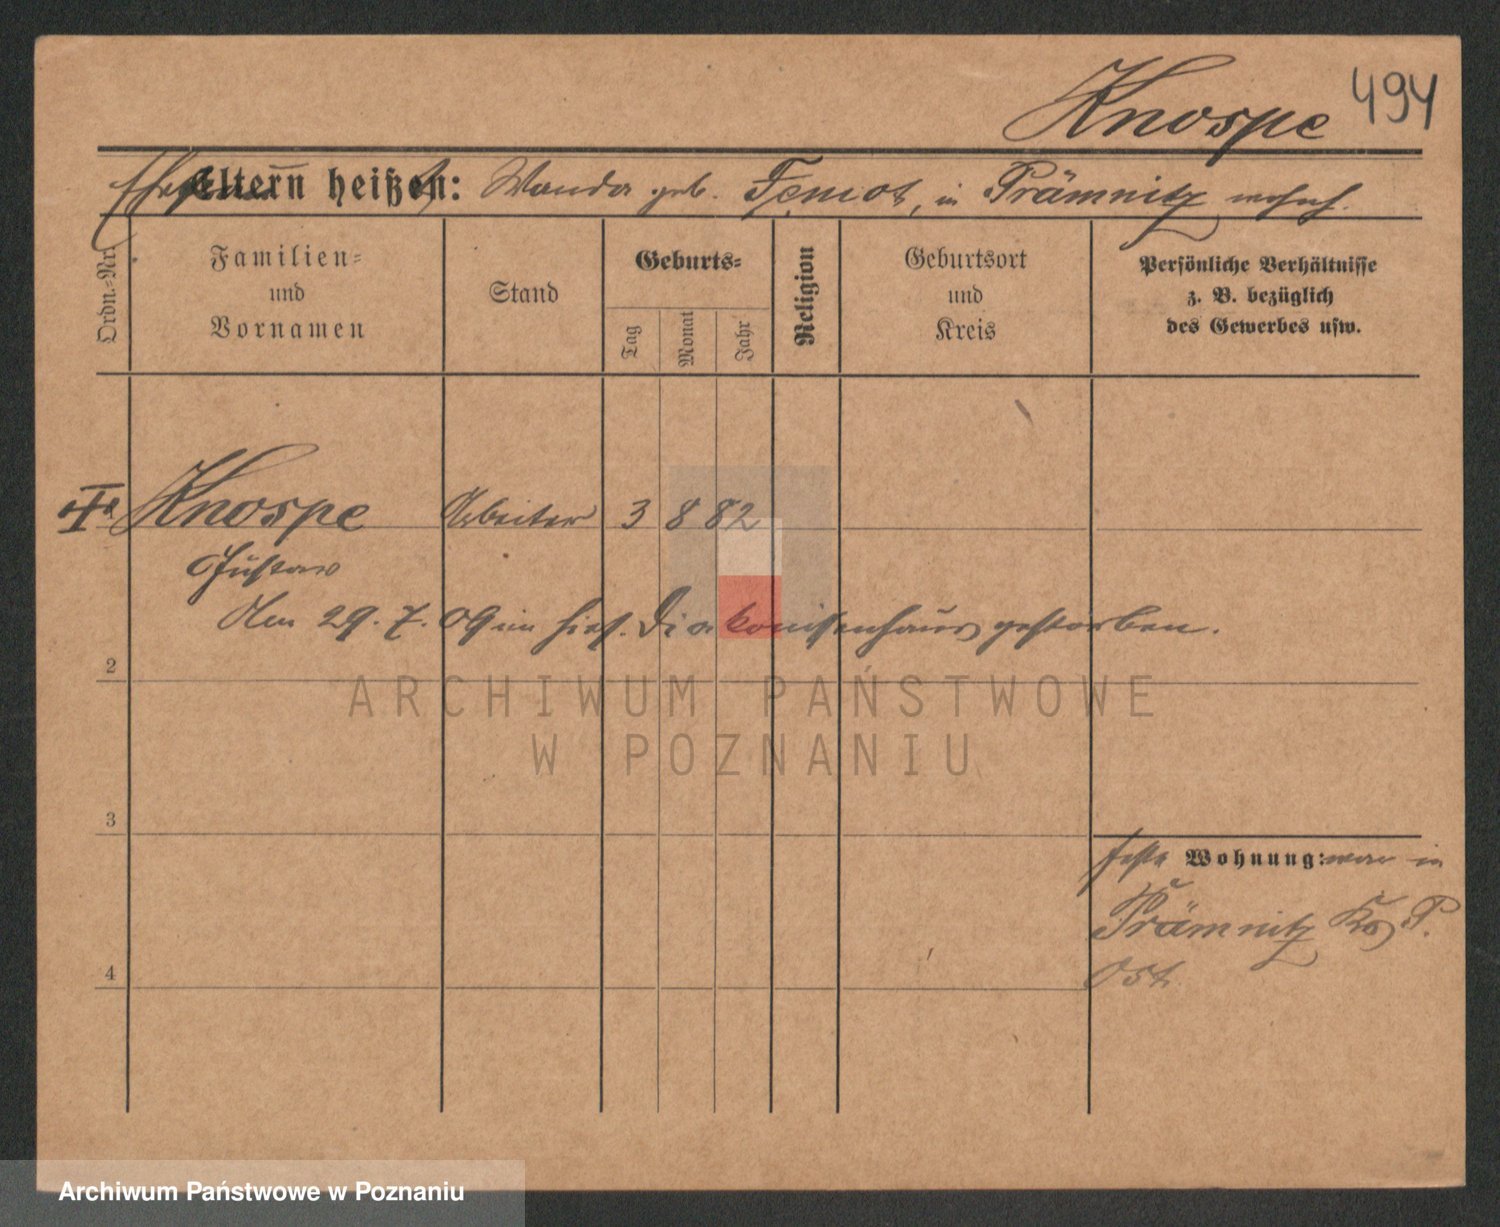 Knospe 494
Eltern heißen: Wanda geb. Femot, in Prämnitz wohnh.
Ordn.-Nr.
Familien-
und
Vornamen
Stand
Geburts-
Tag
Monat
Jahr
Religion
Geburtsort
und
Kreis
Persönliche Verhältnisse
z. B. bezüglich
des Gewerbes usw.
Knospe Arbeiter 3 8 82
Gustav
Am 29. 7. 09 im hies. Diakonissenhaus gestorben.
2
3
feste Wohnung: war in
Prämnitz Krs P.
Ost.
4
ARCHIWUM PAŃSTWOWE
W POZNANIU
Archiwum Państwowe w Poznaniu